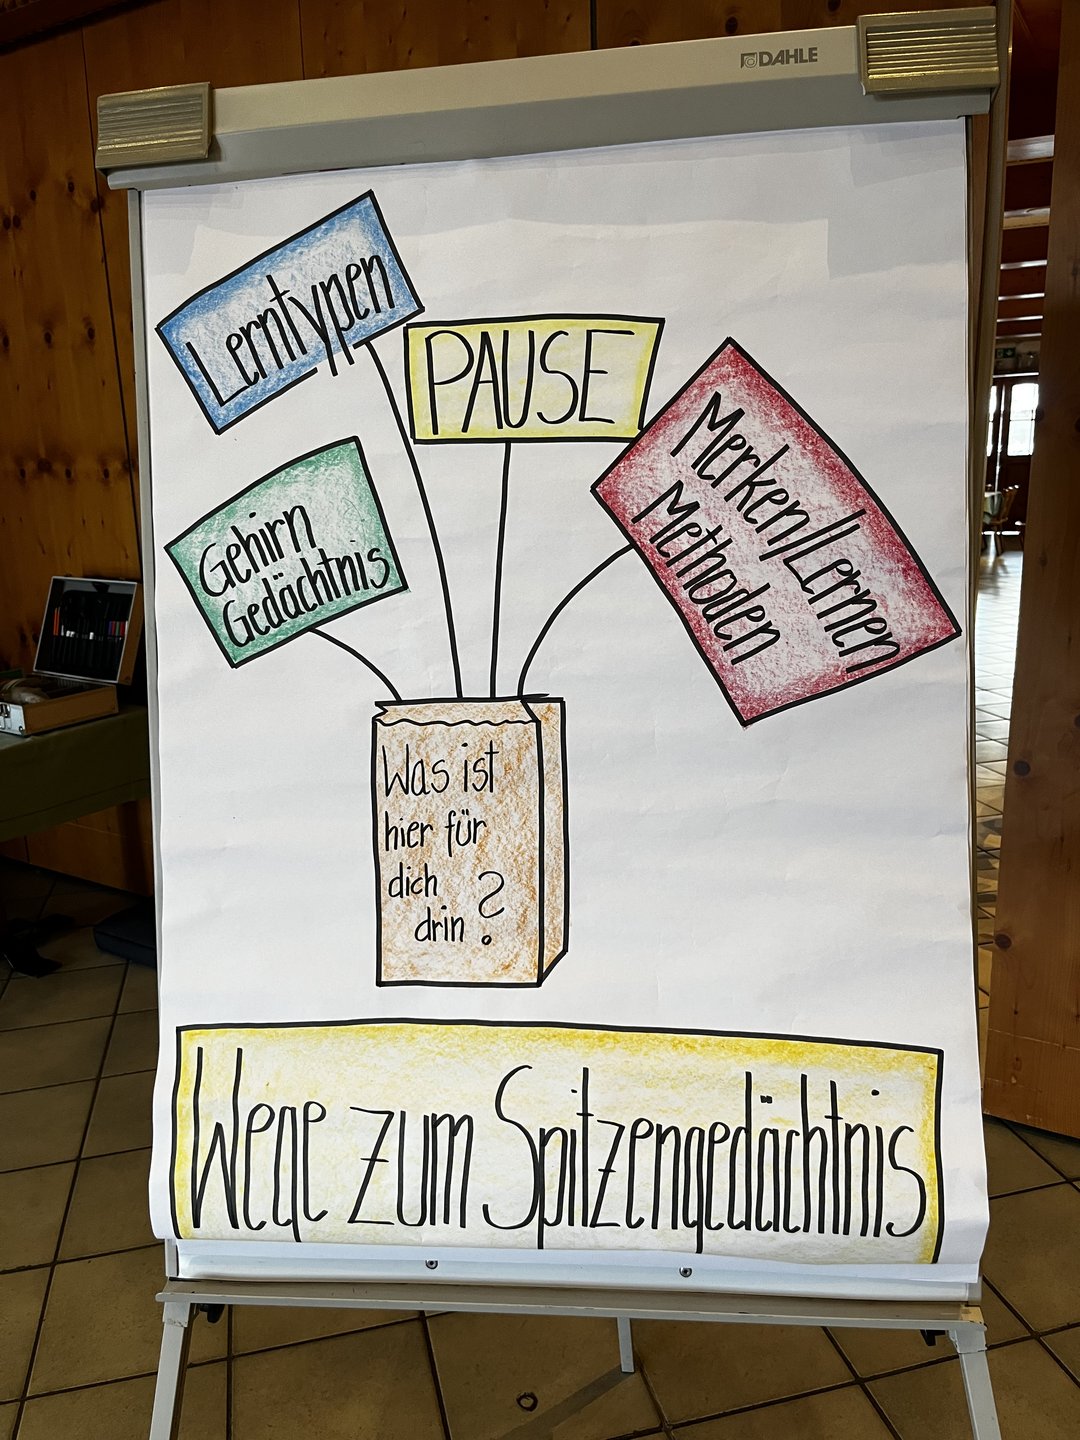 DAHLE
Lerntypen
PAUSE
Merken/Lernen
Methoden
Gehirn
Gedächtnis
Was ist
hier für
dich
drin?
Wege zum Spitzengedächtnis